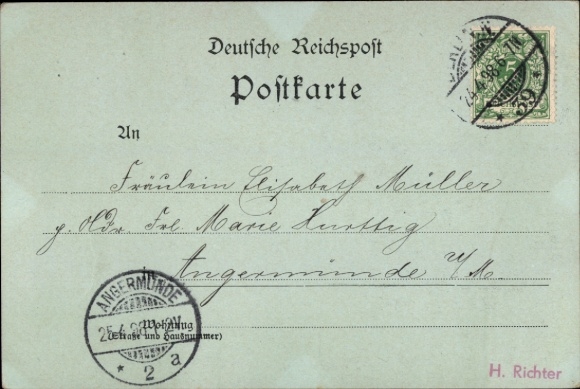 Deutsche Reichspost
Postkarte
An
Fräulein Elisabeth Müller
p. Adr. Frl. Marie Hurttig
in
Angermünde U/M.
Wohnung
(Straße und Hausnummer)
ANGERMÜNDE
25.4.98
* 2 a
BERLIN N
24.4.98. 6-7N.
* 39 *
5
H. Richter